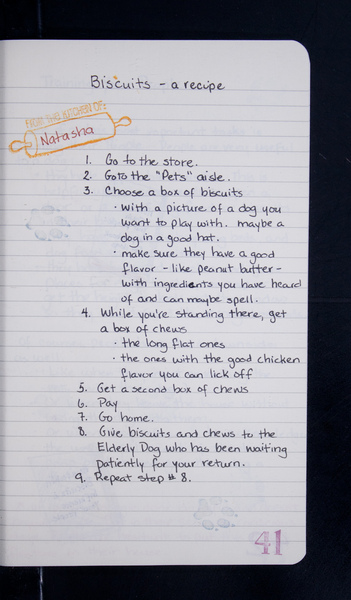 Biscuits - a recipe
FROM THE KITCHEN OF:
Natasha
1. Go to the store.
2. Go to the "Pets" aisle.
3. Choose a box of biscuits
· with a picture of a dog you
want to play with. maybe a
dog in a good hat.
· make sure they have a good
flavor - like peanut butter -
with ingredients you have heard
of and can maybe spell.
4. While you're standing there, get
a box of chews
· the long flat ones
· the ones with the good chicken
flavor you can lick off
5. Get a second box of chews
6. Pay
7. Go home.
8. Give biscuits and chews to the
Elderly Dog who has been waiting
patiently for your return.
9. Repeat step # 8.
41